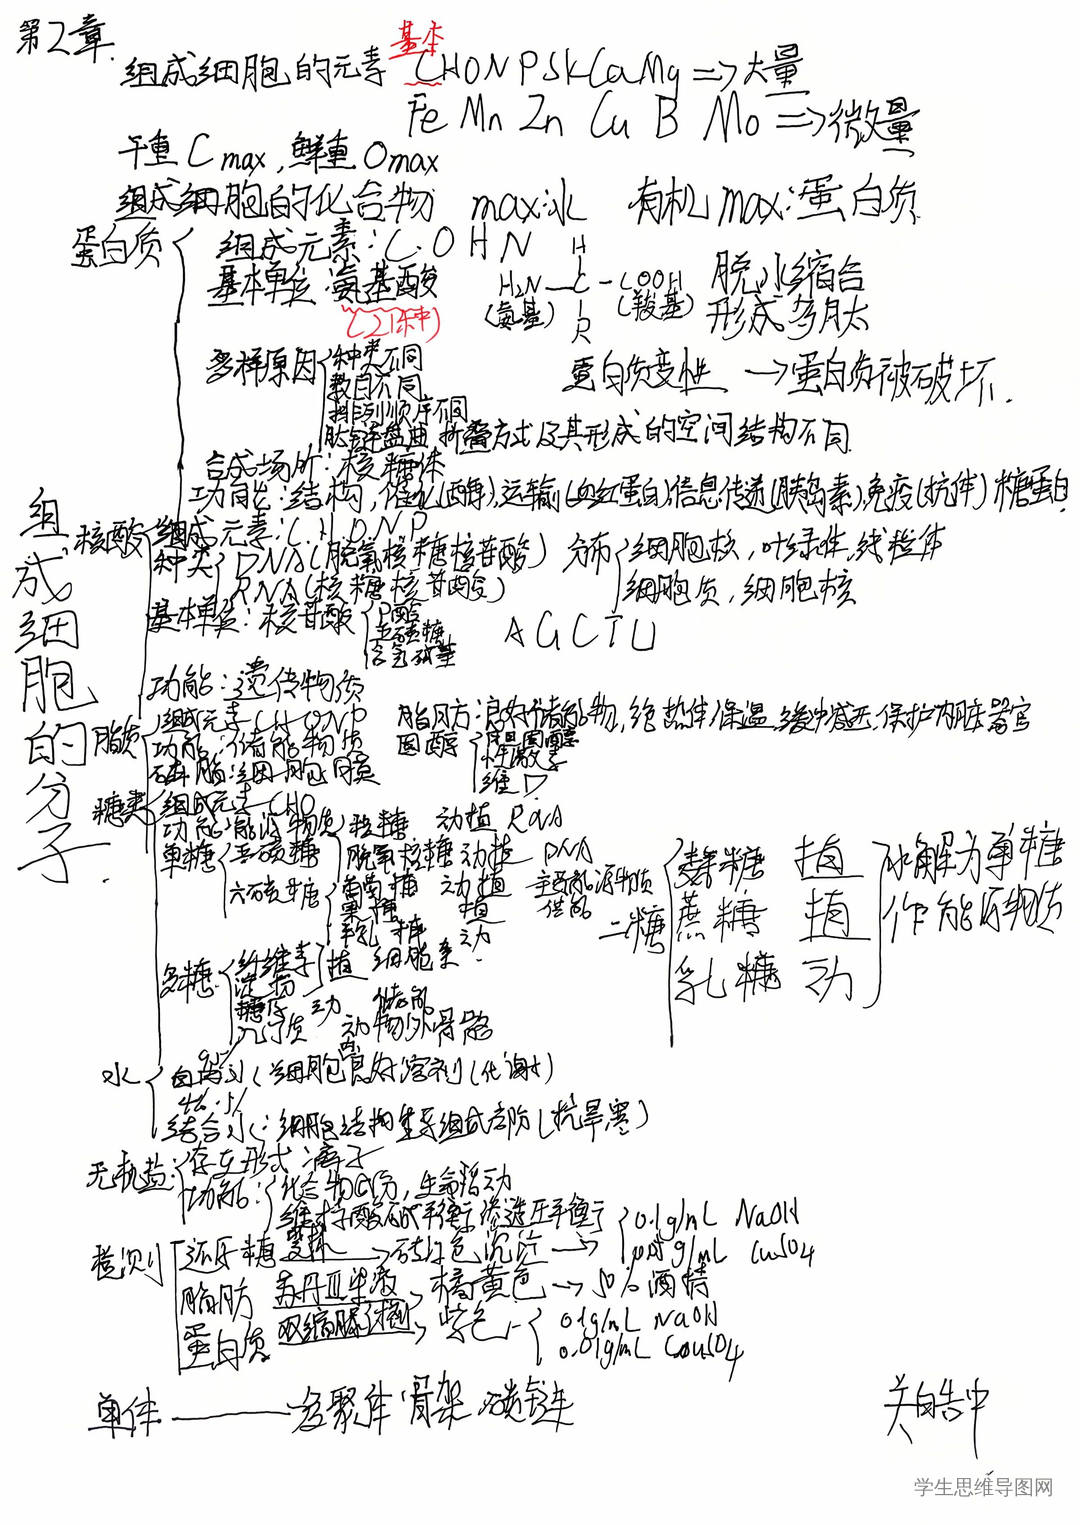 第2章
基本
组成细胞的元素 CHONPSKCaMg => 大量
Fe Mn Zn Cu B Mo => 微量
干重Cmax,鲜重Omax
组成细胞的化合物 max:水 有机max:蛋白质
组成细胞的分子
蛋白质
组成元素:C.OHN
基本单位:氨基酸
(21种)
H
H2N—C-COOH
(氨基) (羧基)
R
脱水缩合
形成多肽
多样原因
种类不同
数目不同
排列顺序不同
折叠方式及其形成的空间结构不同
蛋白质变性→蛋白质被破坏.
合成场所:核糖体
功能:结构,催化(酶),运输(血红蛋白),信息传递(胰岛素),免疫(抗体)糖蛋白
核酸
组成元素:C.H.O.N.P
种类
DNA(脱氧核糖核苷酸)
RNA(核糖核苷酸)
分布
细胞核,叶绿体,线粒体
细胞质,细胞核
基本单位:核苷酸
P酸
五碳糖
含氮碱基
AGCTU
功能:遗传物质
脂质
组成元素CHONP
功能:储能物质
磷脂:细胞膜
脂肪:良好储能物,绝热体保温,缓冲减压,保护内脏器官
固醇
胆固醇
性激素
维D
糖类
组成元素CHO
功能:能源物质
单糖
五碳糖
核糖 动植 RNA
脱氧核糖 动植 DNA
六碳糖
葡萄糖 动植 主要能源物质
供能
果糖 植
半乳糖 动
二糖
麦糖 植
蔗糖 植
乳糖 动
水解为单糖
作能源物质
多糖
纤维素
淀粉
植 细胞
糖原 动 储能
几丁质 动物外骨骼
水
95.5%
自由水(细胞良好溶剂(代谢水)
4.5%
结合水:细胞结构重要组成部分(抗旱寒)
无机盐:
存在形式:离子
功能:
化合物成分,生命活动
维持酸碱平衡渗透压平衡
检测
还原糖 斐林→砖红色沉淀→
0.1g/mL NaOH
0.05g/mL CuSO4
脂肪 苏丹III染液→橘黄色→50%酒精
蛋白质 双缩脲试剂→紫色-
0.1g/mL NaOH
0.01g/mL CuSO4
单体——多聚体 骨架 碳链
关皓中
学生思维导图网